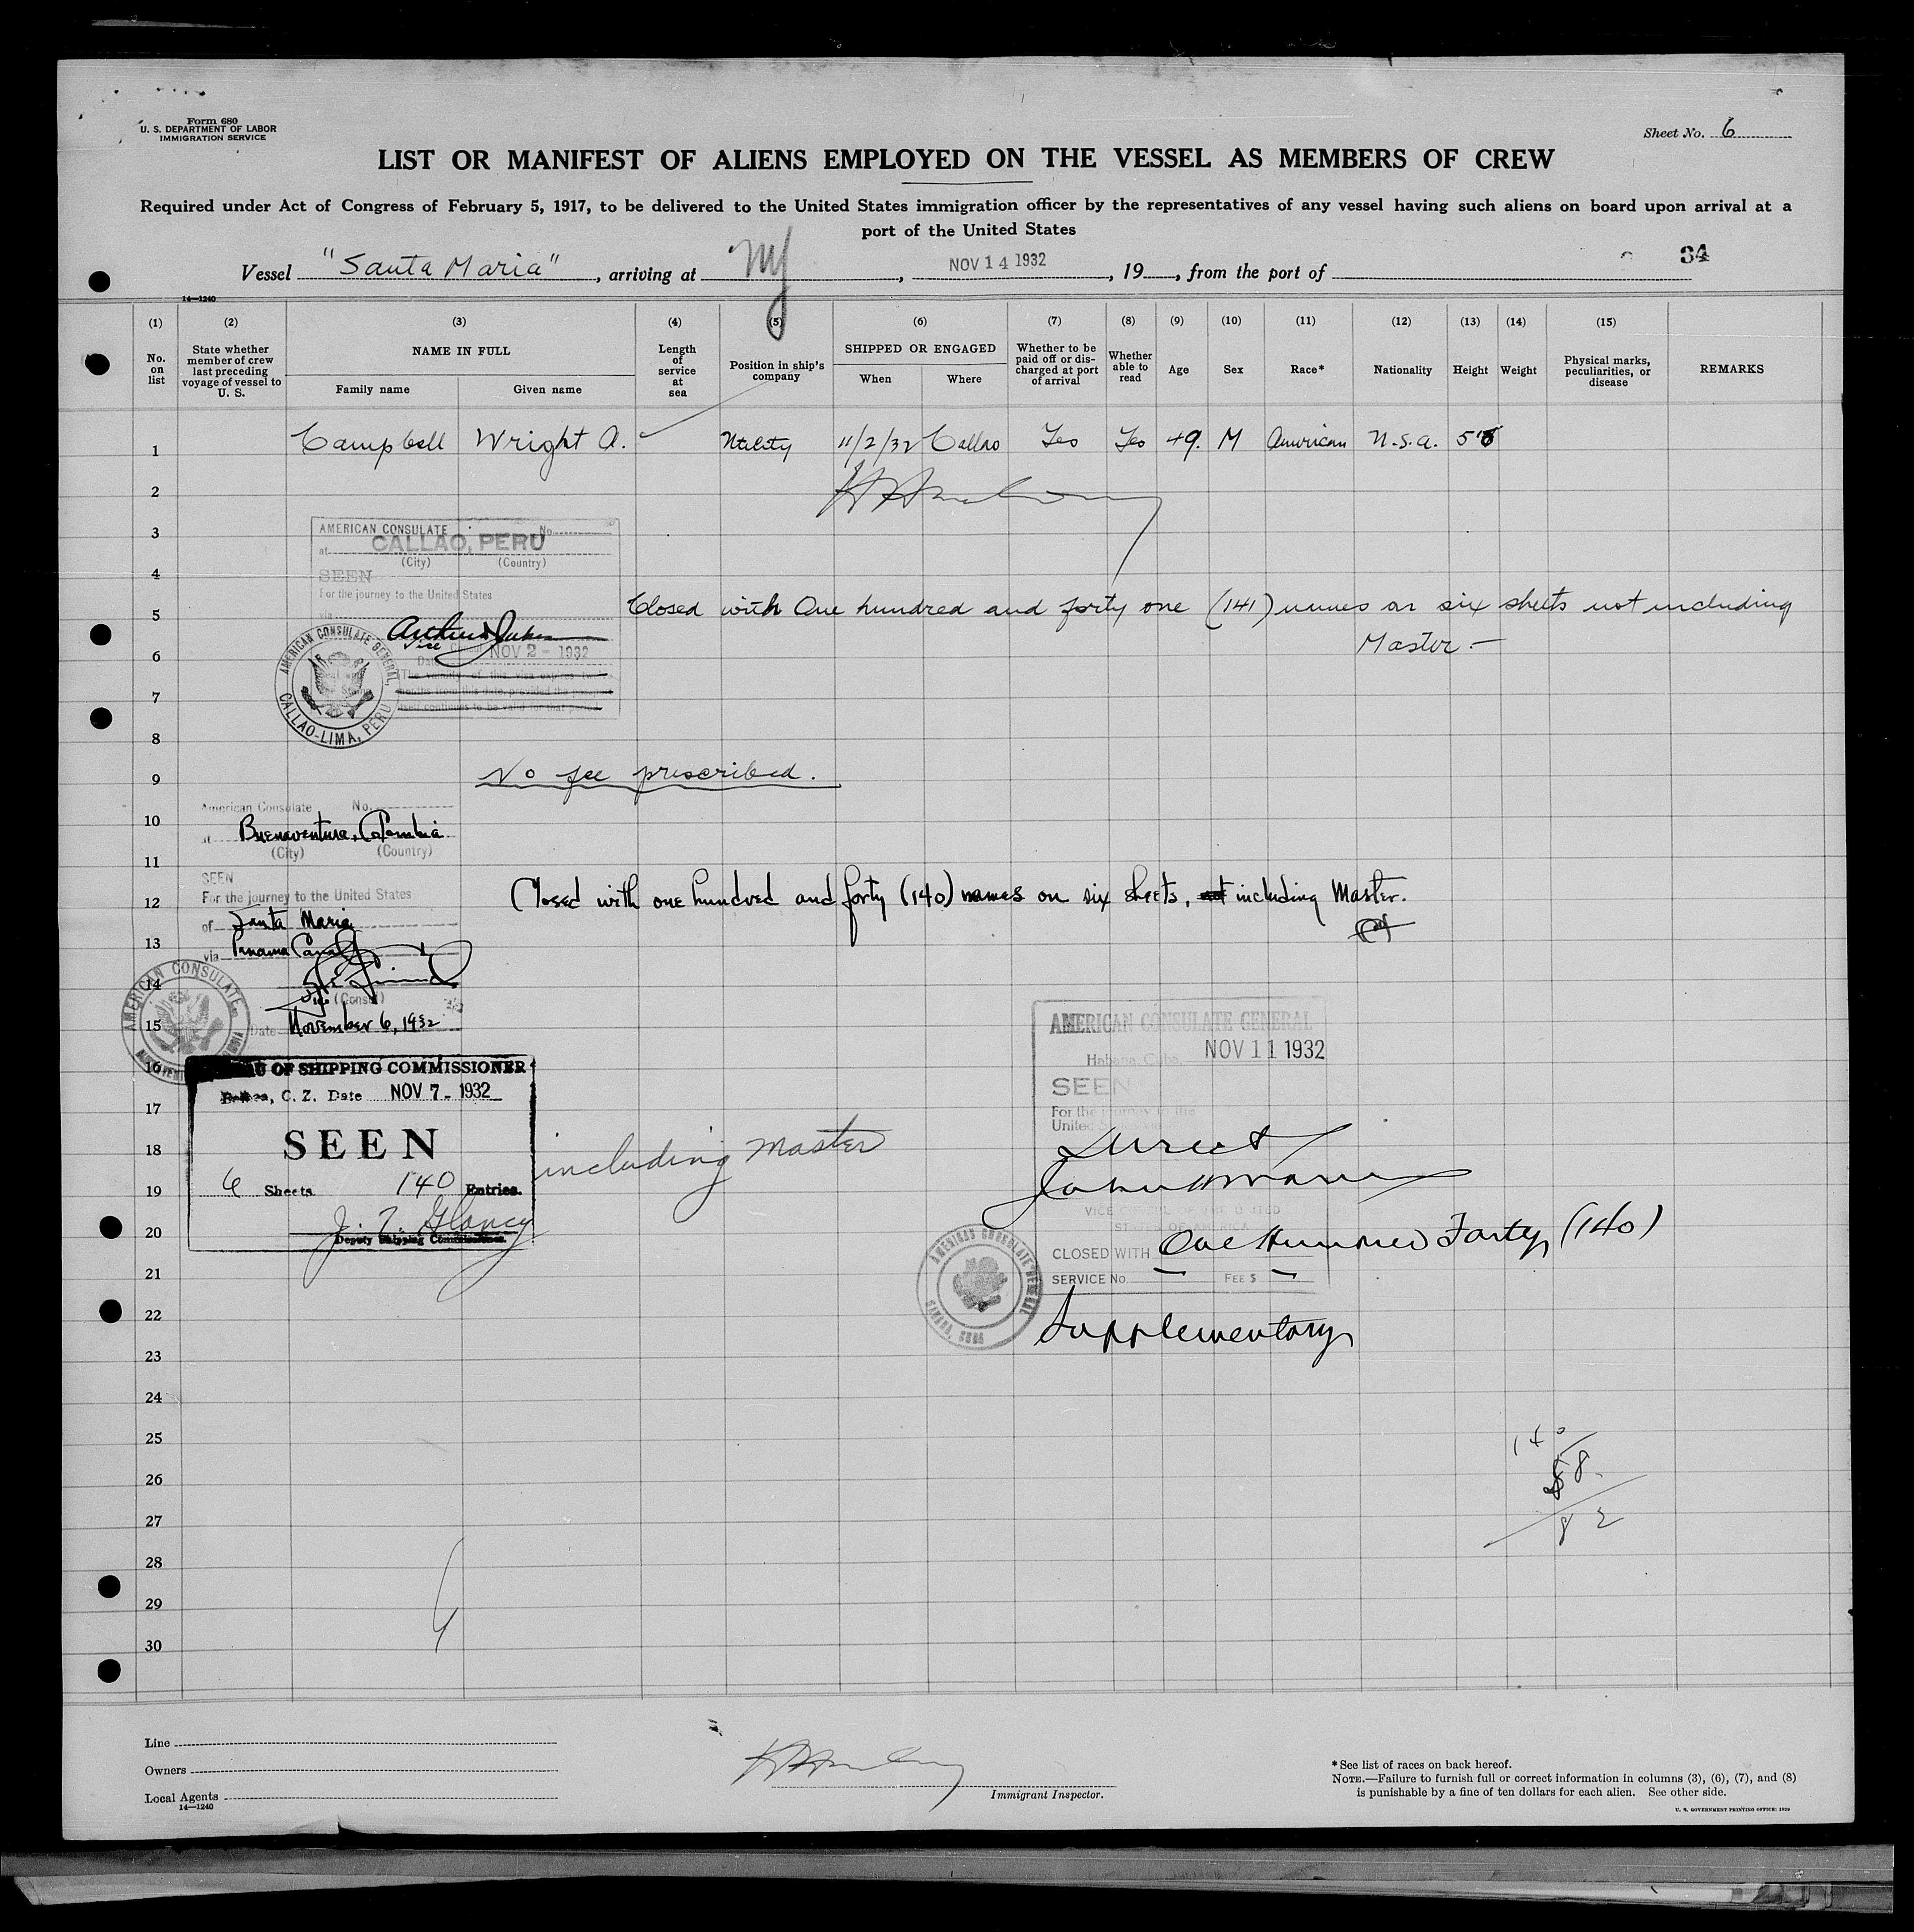 Form 680
U. S. DEPARTMENT OF LABOR
IMMIGRATION SERVICE
Sheet No. 6
LIST OR MANIFEST OF ALIENS EMPLOYED ON THE VESSEL AS MEMBERS OF CREW
Required under Act of Congress of February 5, 1917, to be delivered to the United States immigration officer by the representatives of any vessel having such aliens on board upon arrival at a
port of the United States
34
Vessel "Santa Maria", arriving at NY, NOV 14 1932, 19, from the port of
14—1240
(1) (2) (3) (4) (5) (6) (7) (8) (9) (10) (11) (12) (13) (14) (15)
No. on list
State whether member of crew last preceding voyage of vessel to U. S.
NAME IN FULL
Family name
Given name
Length of service at sea
Position in ship's company
SHIPPED OR ENGAGED
When
Where
Whether to be paid off or discharged at port of arrival
Whether able to read
Age
Sex
Race*
Nationality
Height
Weight
Physical marks, peculiarities, or disease
REMARKS
1 Campbell Wright A. Utility 11/2/32 Callao Yes Yes 49. M American U.S.A.
2
3
AMERICAN CONSULATE No.
at CALLAO, PERU
(City) (Country)
4
SEEN
For the journey to the United States
5
via
Closed with One hundred and forty one (141) names on six sheets not including
Master —
6
Vice Consul
Date NOV 2 - 1932
AMERICAN CONSULATE GENERAL,
CALLAO-LIMA, PERU
7
The validity of this visa expires
months from this date, provided the
itself continues to be valid for that period
8
9
No fee prescribed.
10
American Consulate No.
at Buenaventura, Colombia
(City) (Country)
11
SEEN
12
For the journey to the United States
Closed with one hundred and forty (140) names on six sheets, not including Master.
of Santa Maria
13
via Panama Canal
14
Vice (Consul)
15
Date November 6, 1932
AMERICAN CONSULATE
16
OF SHIPPING COMMISSIONER
Balboa, C. Z. Date NOV 7 - 1932
17
SEEN
18
including Master
6 Sheets 140 Entries.
19
J. T. Glancy
20
Deputy Shipping Commissioner.
AMERICAN CONSULATE GENERAL
Habana, Cuba, NOV 11 1932
SEEN
For the journey to the
United States via
Direct
VICE CONSUL OF THE UNITED
STATES OF AMERICA
CLOSED WITH One Hundred Forty (140)
21
SERVICE No. — FEE $ —
AMERICAN CONSULATE GENERAL
HABANA, CUBA
22
Supplementary
23
24
25
140
26
58
27
82
28
29
30
Line
Owners
Local Agents
14—1240
Immigrant Inspector.
*See list of races on back hereof.
NOTE.—Failure to furnish full or correct information in columns (3), (6), (7), and (8)
is punishable by a fine of ten dollars for each alien. See other side.
U. S. GOVERNMENT PRINTING OFFICE: 1929